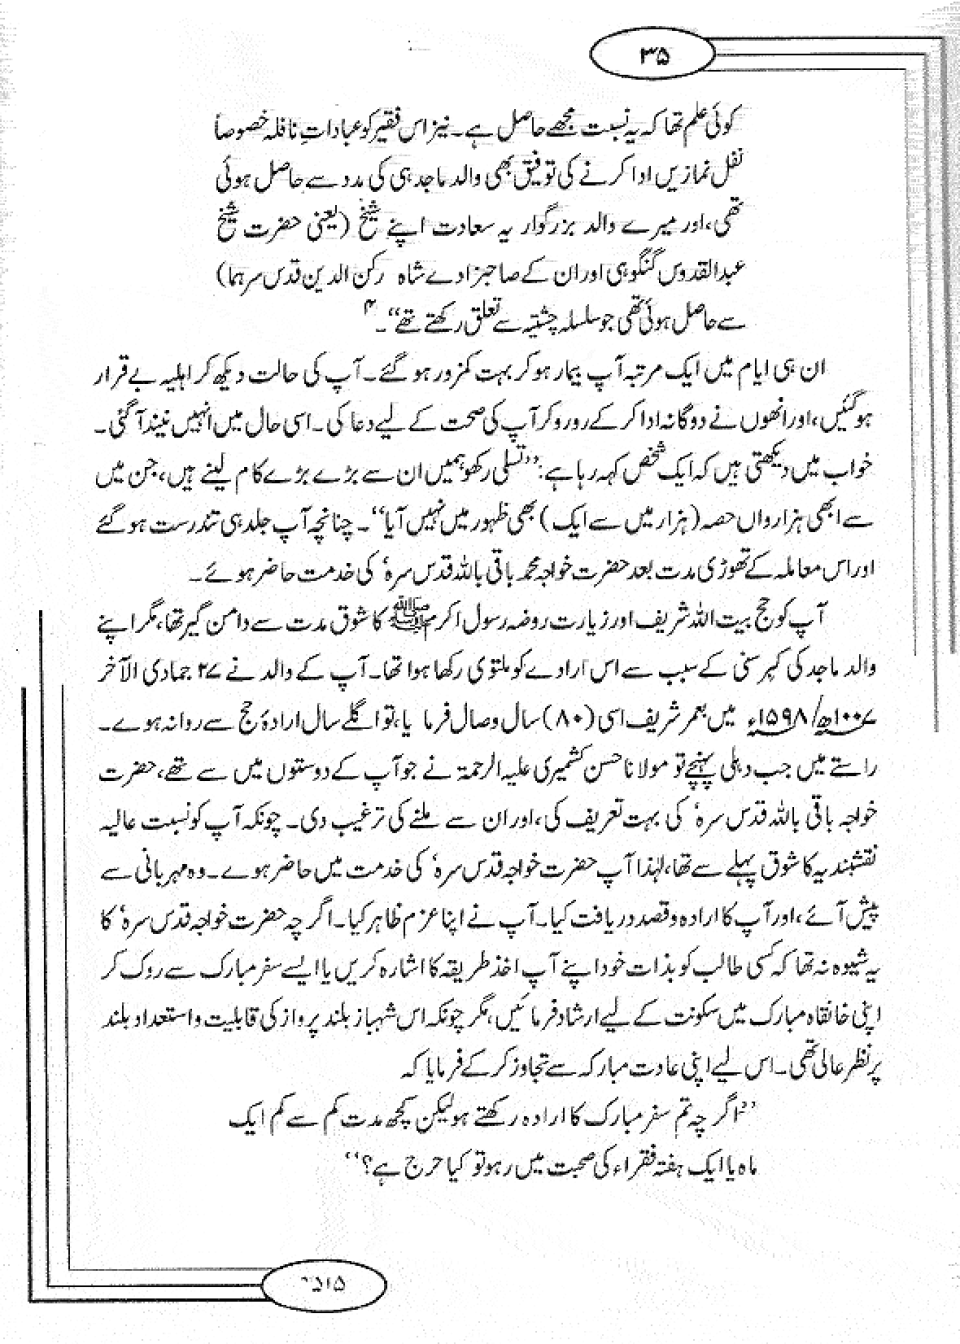 ۳۵
کوئی علم تھا کہ یہ نسبت مجھے حاصل ہے۔ نیز اس فقیر کو عباداتِ نافلہ خصوصاً
نفل نمازیں ادا کرنے کی توفیق بھی والد ماجد ہی کی مدد سے حاصل ہوئی
تھی، اور میرے والد بزرگوار یہ سعادت اپنے شیخ (یعنی حضرت شیخ
عبدالقدوس گنگوہی اور ان کے صاحبزادے شاہ رکن الدین قدس سرہما)
سے حاصل ہوئی تھی جو سلسلہ چشتیہ سے تعلق رکھتے تھے“۔ ۴
ان ہی ایام میں ایک مرتبہ آپ بیمار ہو کر بہت کمزور ہو گئے۔ آپ کی حالت دیکھ کر اہلیہ بے قرار
ہو گئیں، اور انھوں نے دوگانہ ادا کر کے رو رو کر آپ کی صحت کے لیے دعا کی۔ اسی حال میں انہیں نیند آ گئی۔
خواب میں دیکھتی ہیں کہ ایک شخص کہہ رہا ہے: ”تسلی رکھو ہمیں ان سے بڑے بڑے کام لینے ہیں، جن میں
سے ابھی ہزارواں حصہ (ہزار میں سے ایک) بھی ظہور میں نہیں آیا“۔ چنانچہ آپ جلد ہی تندرست ہو گئے
اور اس معاملہ کے تھوڑی مدت بعد حضرت خواجہ محمد باقی باللہ قدس سرہٗ کی خدمت حاضر ہوئے۔
آپ کو حج بیت اللہ شریف اور زیارت روضہ رسول اکرم ﷺ کا شوق مدت سے دامن گیر تھا، مگر اپنے
والد ماجد کی کبر سنی کے سبب سے اس ارادے کو ملتوی رکھا ہوا تھا۔ آپ کے والد نے ۲۷ جمادی الآخر
۱۰۰۷ھ/۱۵۹۸ء میں بعمر شریف اسی (۸۰) سال وصال فرمایا، تو اگلے سال ارادۂ حج سے روانہ ہوے۔
راستے میں جب دہلی پہنچے تو مولانا حسن کشمیری علیہ الرحمۃ نے جو آپ کے دوستوں میں سے تھے، حضرت
خواجہ باقی باللہ قدس سرہٗ کی بہت تعریف کی، اور ان سے ملنے کی ترغیب دی۔ چونکہ آپ کو نسبت عالیہ
نقشبندیہ کا شوق پہلے سے تھا، لہٰذا آپ حضرت خواجہ قدس سرہٗ کی خدمت میں حاضر ہوے۔ وہ مہربانی سے
پیش آئے، اور آپ کا ارادہ و قصد دریافت کیا۔ آپ نے اپنا عزم ظاہر کیا۔ اگرچہ حضرت خواجہ قدس سرہٗ کا
یہ شیوہ نہ تھا کہ کسی طالب کو بذات خود اپنے آپ اخذ طریقہ کا اشارہ کریں یا ایسے سفر مبارک سے روک کر
اپنی خانقاہ مبارک میں سکونت کے لیے ارشاد فرمائیں، مگر چونکہ اس شہباز بلند پرواز کی قابلیت و استعداد بلند
پر نظر عالی تھی۔ اس لیے اپنی عادت مبارکہ سے تجاوز کر کے فرمایا کہ
”اگرچہ تم سفر مبارک کا ارادہ رکھتے ہو لیکن کچھ مدت کم سے کم ایک
ماہ یا ایک ہفتہ فقراء کی صحبت میں رہو تو کیا حرج ہے؟“